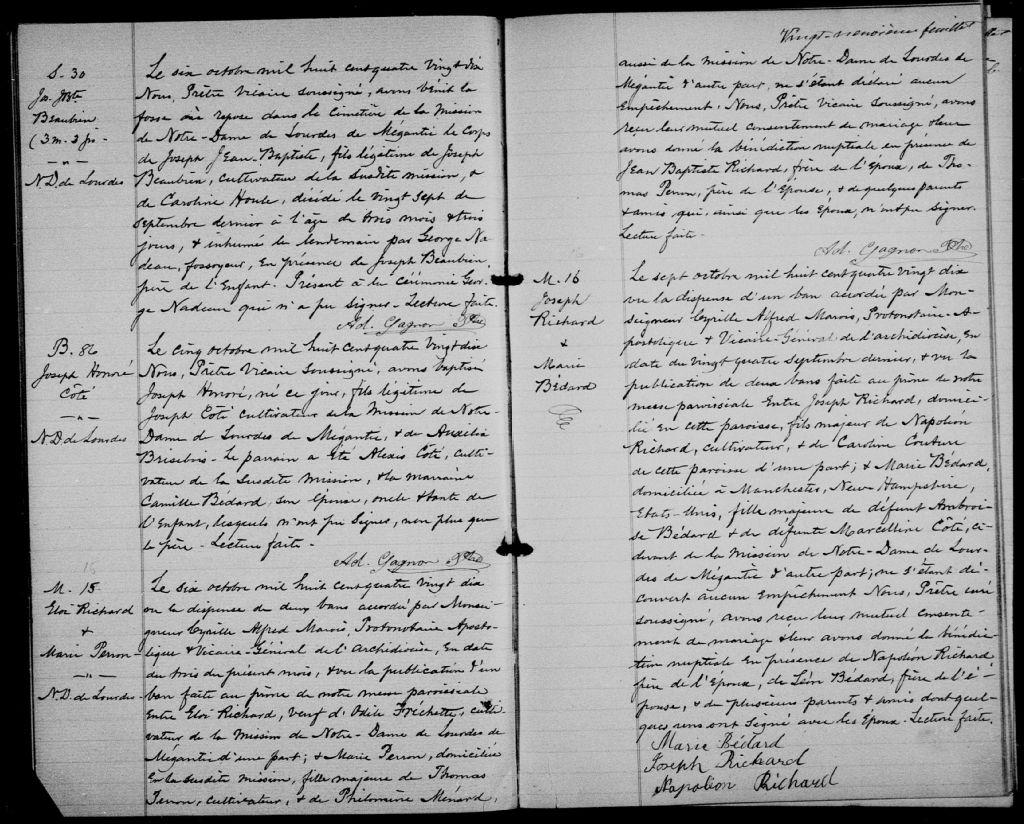 S. 30
Jos. Jbte
Beaubien
(3 m. 3 jrs -
— " —
N.D. de Lourdes
Le six octobre mil huit cent quatre vingt dix
Nous, Prêtre Vicaire soussigné, avons bénit la
fosse où repose dans le Cimetière de la Mission
de Notre-Dame de Lourdes de Mégantic le Corps
de Joseph Jean-Baptiste, fils légitime de Joseph
Beaubien, cultivateur de la Susdite mission, &
de Caroline Houle, décédé le vingt Sept de
Septembre dernier à l'âge de trois mois & trois
jours, & inhumé le lendemain par George Na-
deau, fossoyeur, En présence de Joseph Beaubien,
père de l'Enfant. Présent à la Cérémonie Geor-
ge Nadeau qui n'a pu signer - Lecture faite.
Ad. Gagnon Ptre
B. 86
Joseph Honoré
Côté
— " —
N.D. de Lourdes
Le Cinq octobre mil huit cent quatre vingt dix
Nous, Prêtre Vicaire Soussigné, avons baptisé
Joseph Honoré, né ce jour, fils légitime de
Joseph Côté Cultivateur de la Mission de Notre-
Dame de Lourdes de Mégantic, & de Auxilia
Brisebois - Le parrain a Eté Alexis Côté, culti-
vateur de la Susdite Mission, & la marraine
Camille Bédard, son Epouse, oncle & tante de
l'Enfant, lesquels n'ont pu Signer, non plus que
le père - Lecture faite -
Ad. Gagnon Ptre
M. 15
Eloi Richard
&
Marie Perron
— " —
N.D. de Lourdes
Le Six octobre mil huit cent quatre vingt dix
vu la dispense de deux bans accordé par Monsei-
gneur Cyrille Alfred Marois, Protonotaire Aposto-
lique & Vicaire-Général de l'Archidiocèse, En date
du trois du présent mois, & vu la publication d'un
ban faite au prône de notre messe paroissiale
Entre Eloi Richard, veuf d'Odile Fréchette, culti-
vateur de la Mission de Notre-Dame de Lourdes de
Mégantic d'une part; & Marie Perron, domiciliée
En la susdite mission, fille majeure de Thomas
Perron, cultivateur, & de Philomène Ménard,
Vingt-neuvième feuillet
aussi de la mission de Notre-Dame de Lourdes de
Mégantic d'autre part, ne s'étant déclaré aucun
Empêchement, Nous, Prêtre Vicaire Soussigné, avons
reçu leur mutuel consentement de mariage & leur
avons donné la bénédiction nuptiale en présence de
Jean Baptiste Richard, frère de l'Epoux, de Tho-
mas Perron, père de l'Epouse, & de quelques parents
& amis qui, ainsi que les Epoux, n'ont pu Signer.
Lecture faite -
Ad. Gagnon Ptre
M. 16
Joseph
Richard
&
Marie
Bédard
Le sept octobre mil huit cent quatre vingt dix
vu la dispense d'un ban accordé par Mon-
seigneur Cyrille Alfred Marois, Protonotaire-A-
postolique & Vicaire-Général de l'archidiocèse, En
date du vingt quatre Septembre dernier, & vu la
publication de deux bans faite au prône de notre
messe paroissiale Entre Joseph Richard, domici-
lié En cette paroisse, fils majeur de Napoléon
Richard, cultivateur, & de Caroline Couture
de cette paroisse d'une part; & Marie Bédard,
domiciliée à Manchester, New-Hampshire,
Etats-Unis, fille majeure de défunt Ambroi-
se Bédard & de défunte Marcelline Côté, ci-
devant de la Mission de Notre-Dame de Lour-
des de Mégantic d'autre part; ne s'étant dé-
couvert aucun Empêchement Nous, Prêtre curé
soussigné, avons reçu leur mutuel consente-
ment de mariage & leur avons donné la bénédic-
tion nuptiale En présence de Napoléon Richard,
père de l'Epoux, de Léon Bédard, frère de l'é-
pouse, & de plusieurs parents & amis dont quel-
ques uns ont Signé avec les Epoux - Lecture faite.
Marie Bédard
Joseph Richard
Napoléon Richard